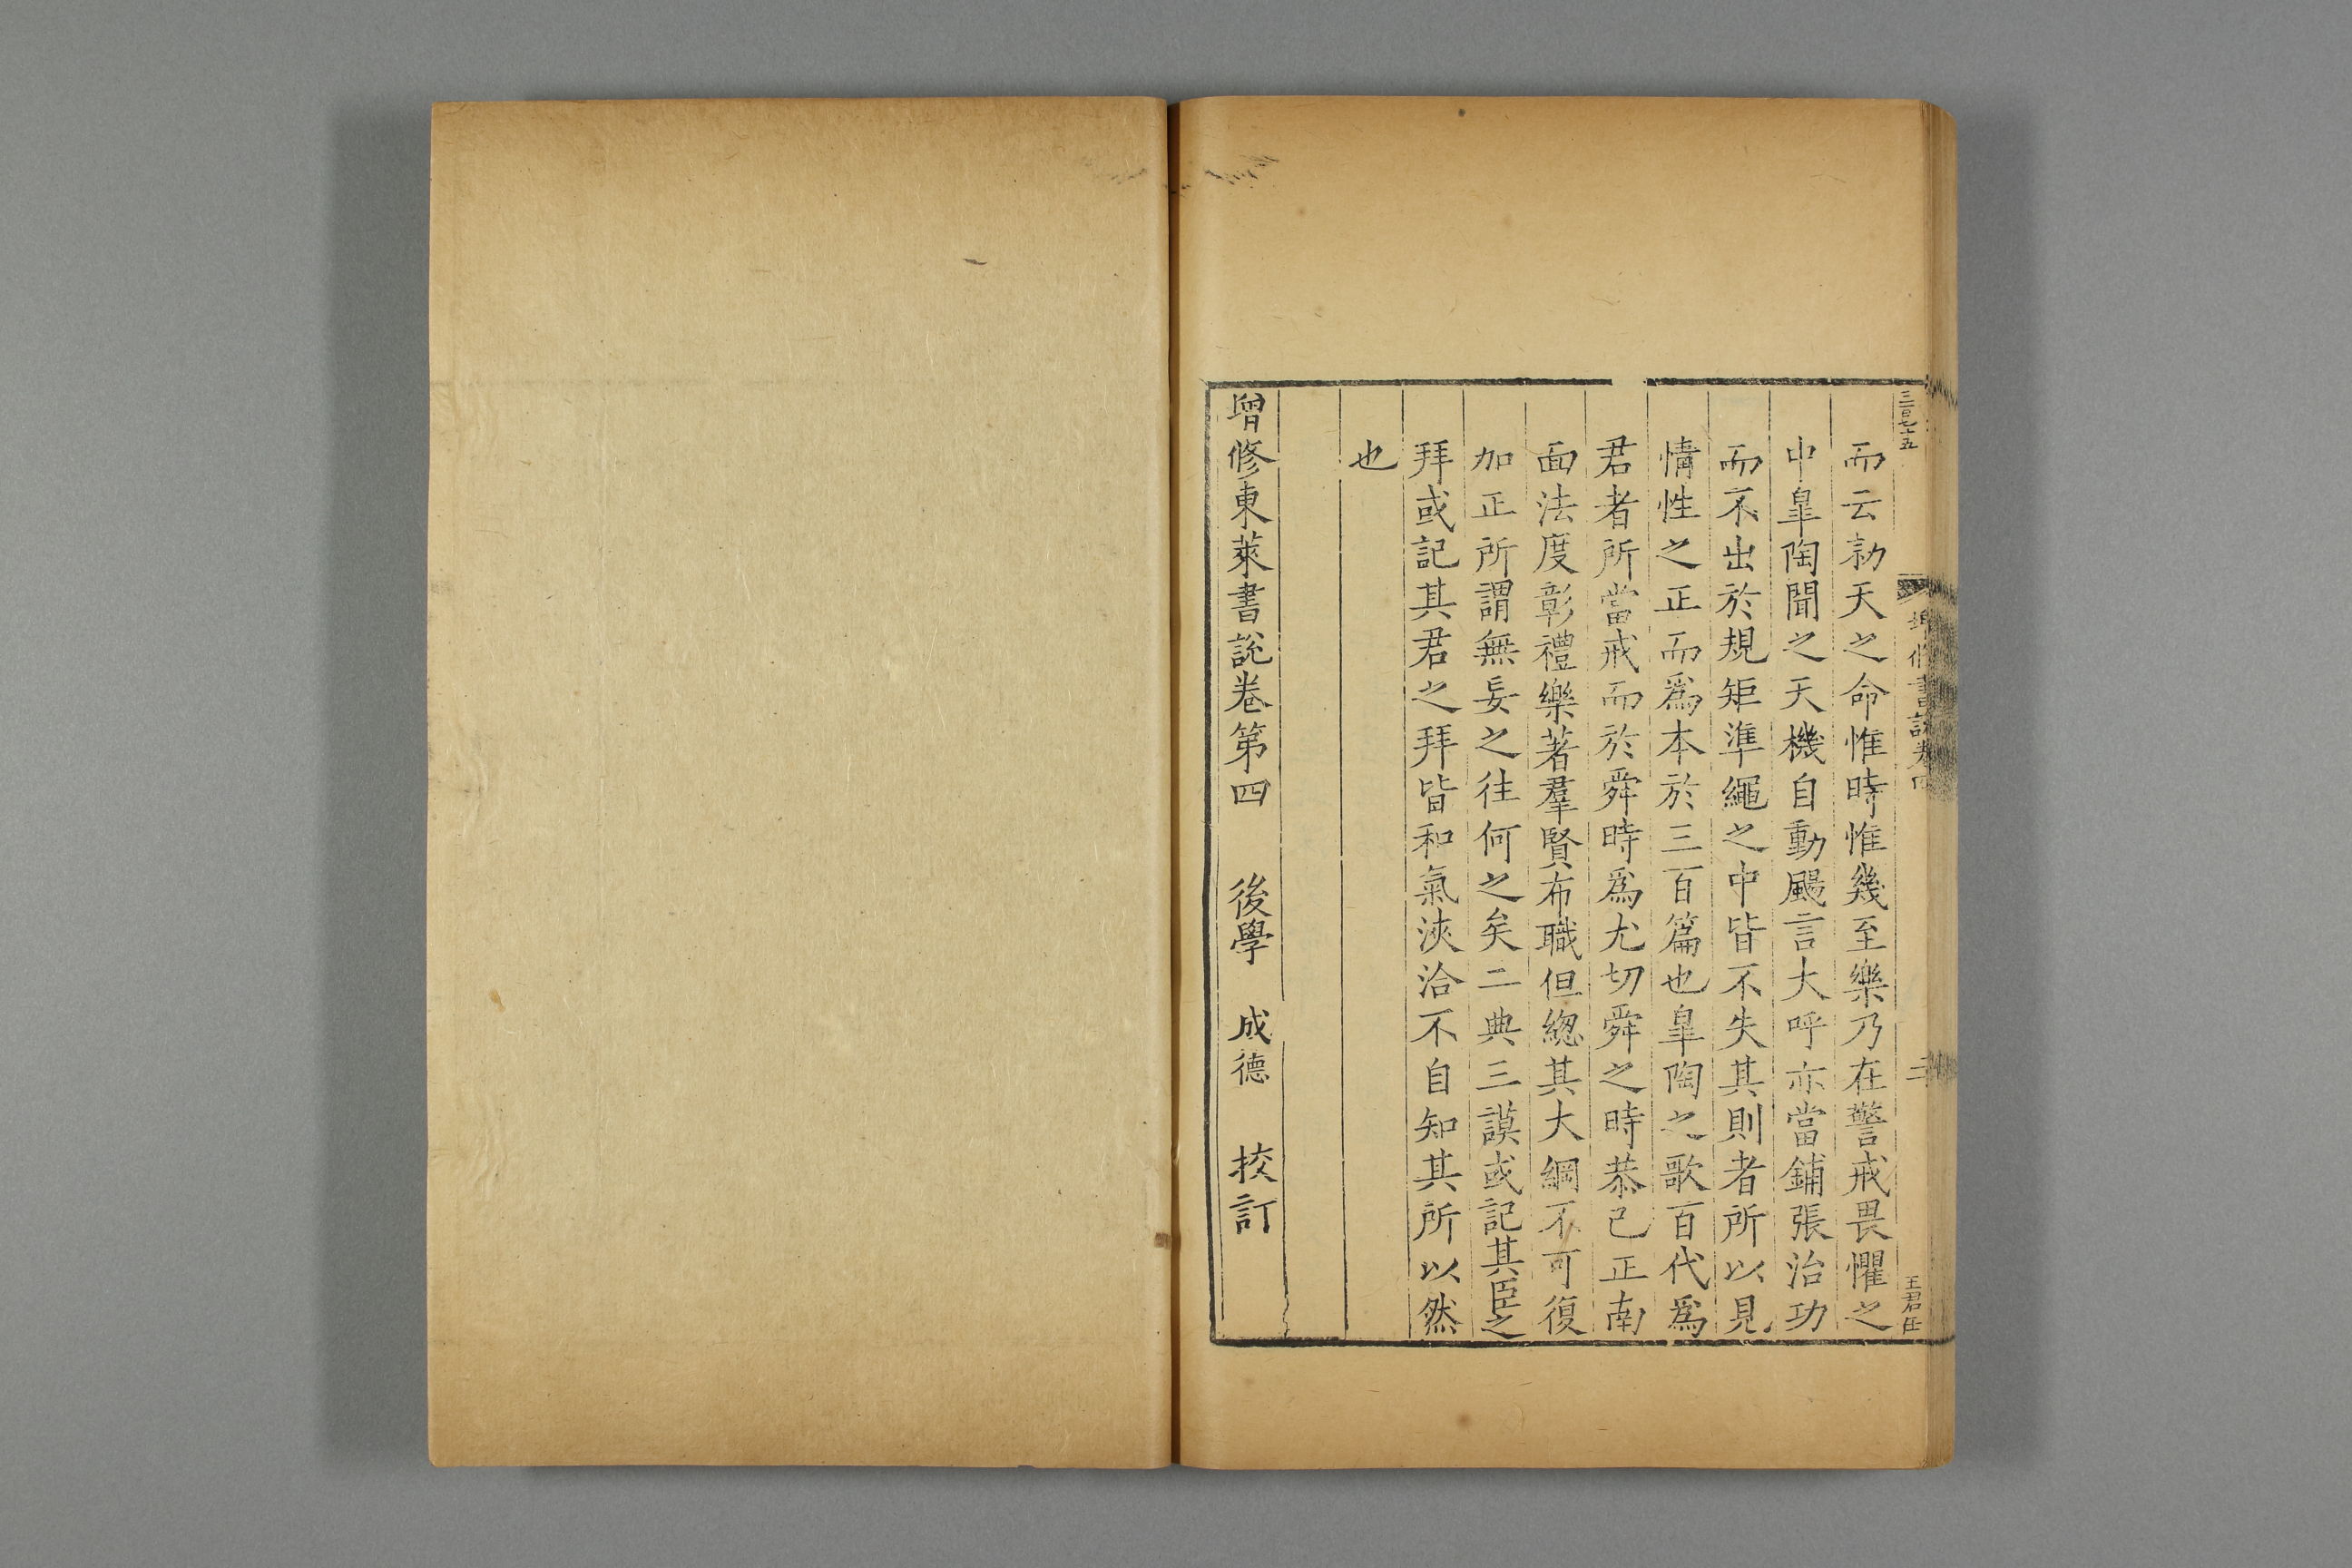 三百七十五
增修書說卷四
二
王君任
而云勑天之命惟時惟幾至樂乃在警戒畏懼之
中臯陶聞之天機自動颺言大呼亦當鋪張治功
而不出於規矩準繩之中皆不失其則者所以見
情性之正而爲本於三百篇也臯陶之歌百代爲
君者所當戒而於舜時爲尤切舜之時恭己正南
面法度彰禮樂著羣賢布職但緫其大綱不可復
加正所謂無妄之往何之矣二典三謨或記其臣之
拜或記其君之拜皆和氣浹洽不自知其所以然
也
增修東萊書說卷第四　後學　成德　挍訂